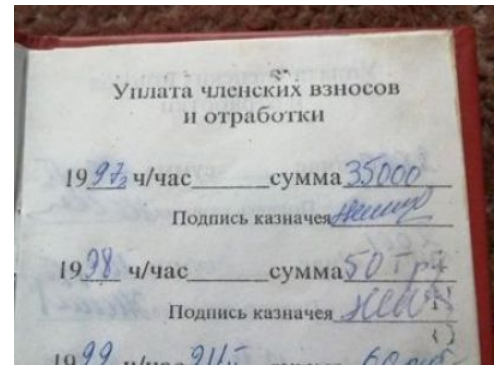 Уплата членских взносов
и отработки
1997г ч/час сумма 35000
Подпись казначея
1998 ч/час сумма 50
Подпись казначея
1999 ч/час сумма 60 руб